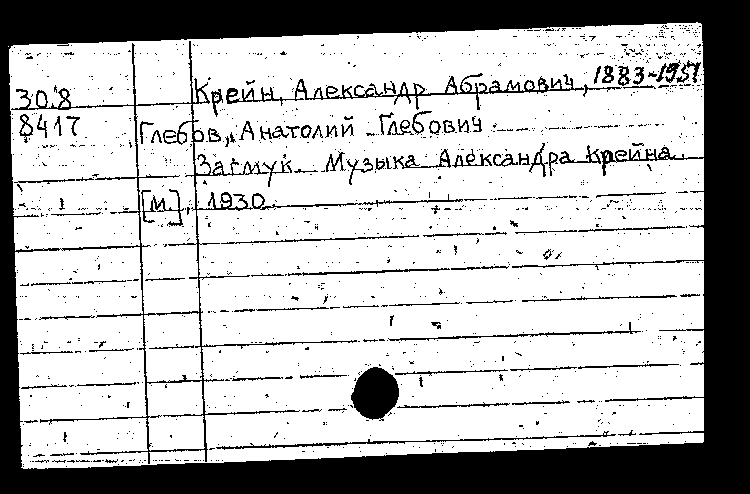 30.8 Крейн, Александр Абрамович, 1883-1951
8417 Глебов, Анатолий Глебович.
Загмук. Музыка Александра Крейна.
[М.], 1930.